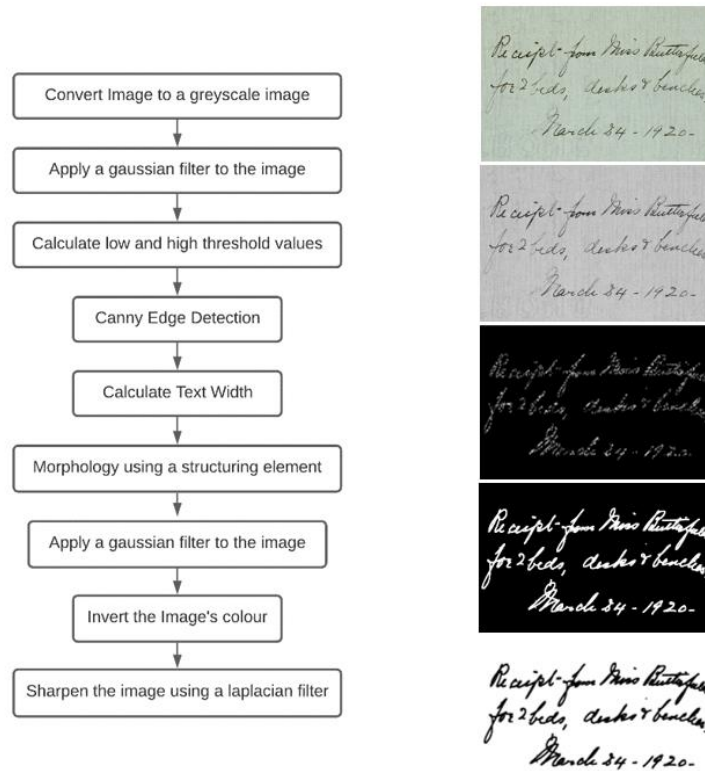 Convert Image to a greyscale image
Apply a gaussian filter to the image
Calculate low and high threshold values
Canny Edge Detection
Calculate Text Width
Morphology using a structuring element
Apply a gaussian filter to the image
Invert the Image's colour
Sharpen the image using a laplacian filter
Receipt from Miss Butterfiel
for 2 beds, desks & benches,
March 24 - 1920-
Receipt from Miss Butterfiel
for 2 beds, desks & benches
March 24 - 1920-
Receipt from Miss Butterfiel
for 2 beds, desks & benches
March 24 - 1920-
Receipt from Miss Butterfiel
for 2 beds, desks & benches,
March 24 - 1920-
Receipt from Miss Butterfiel
for 2 beds, desks & benches,
March 24 - 1920-